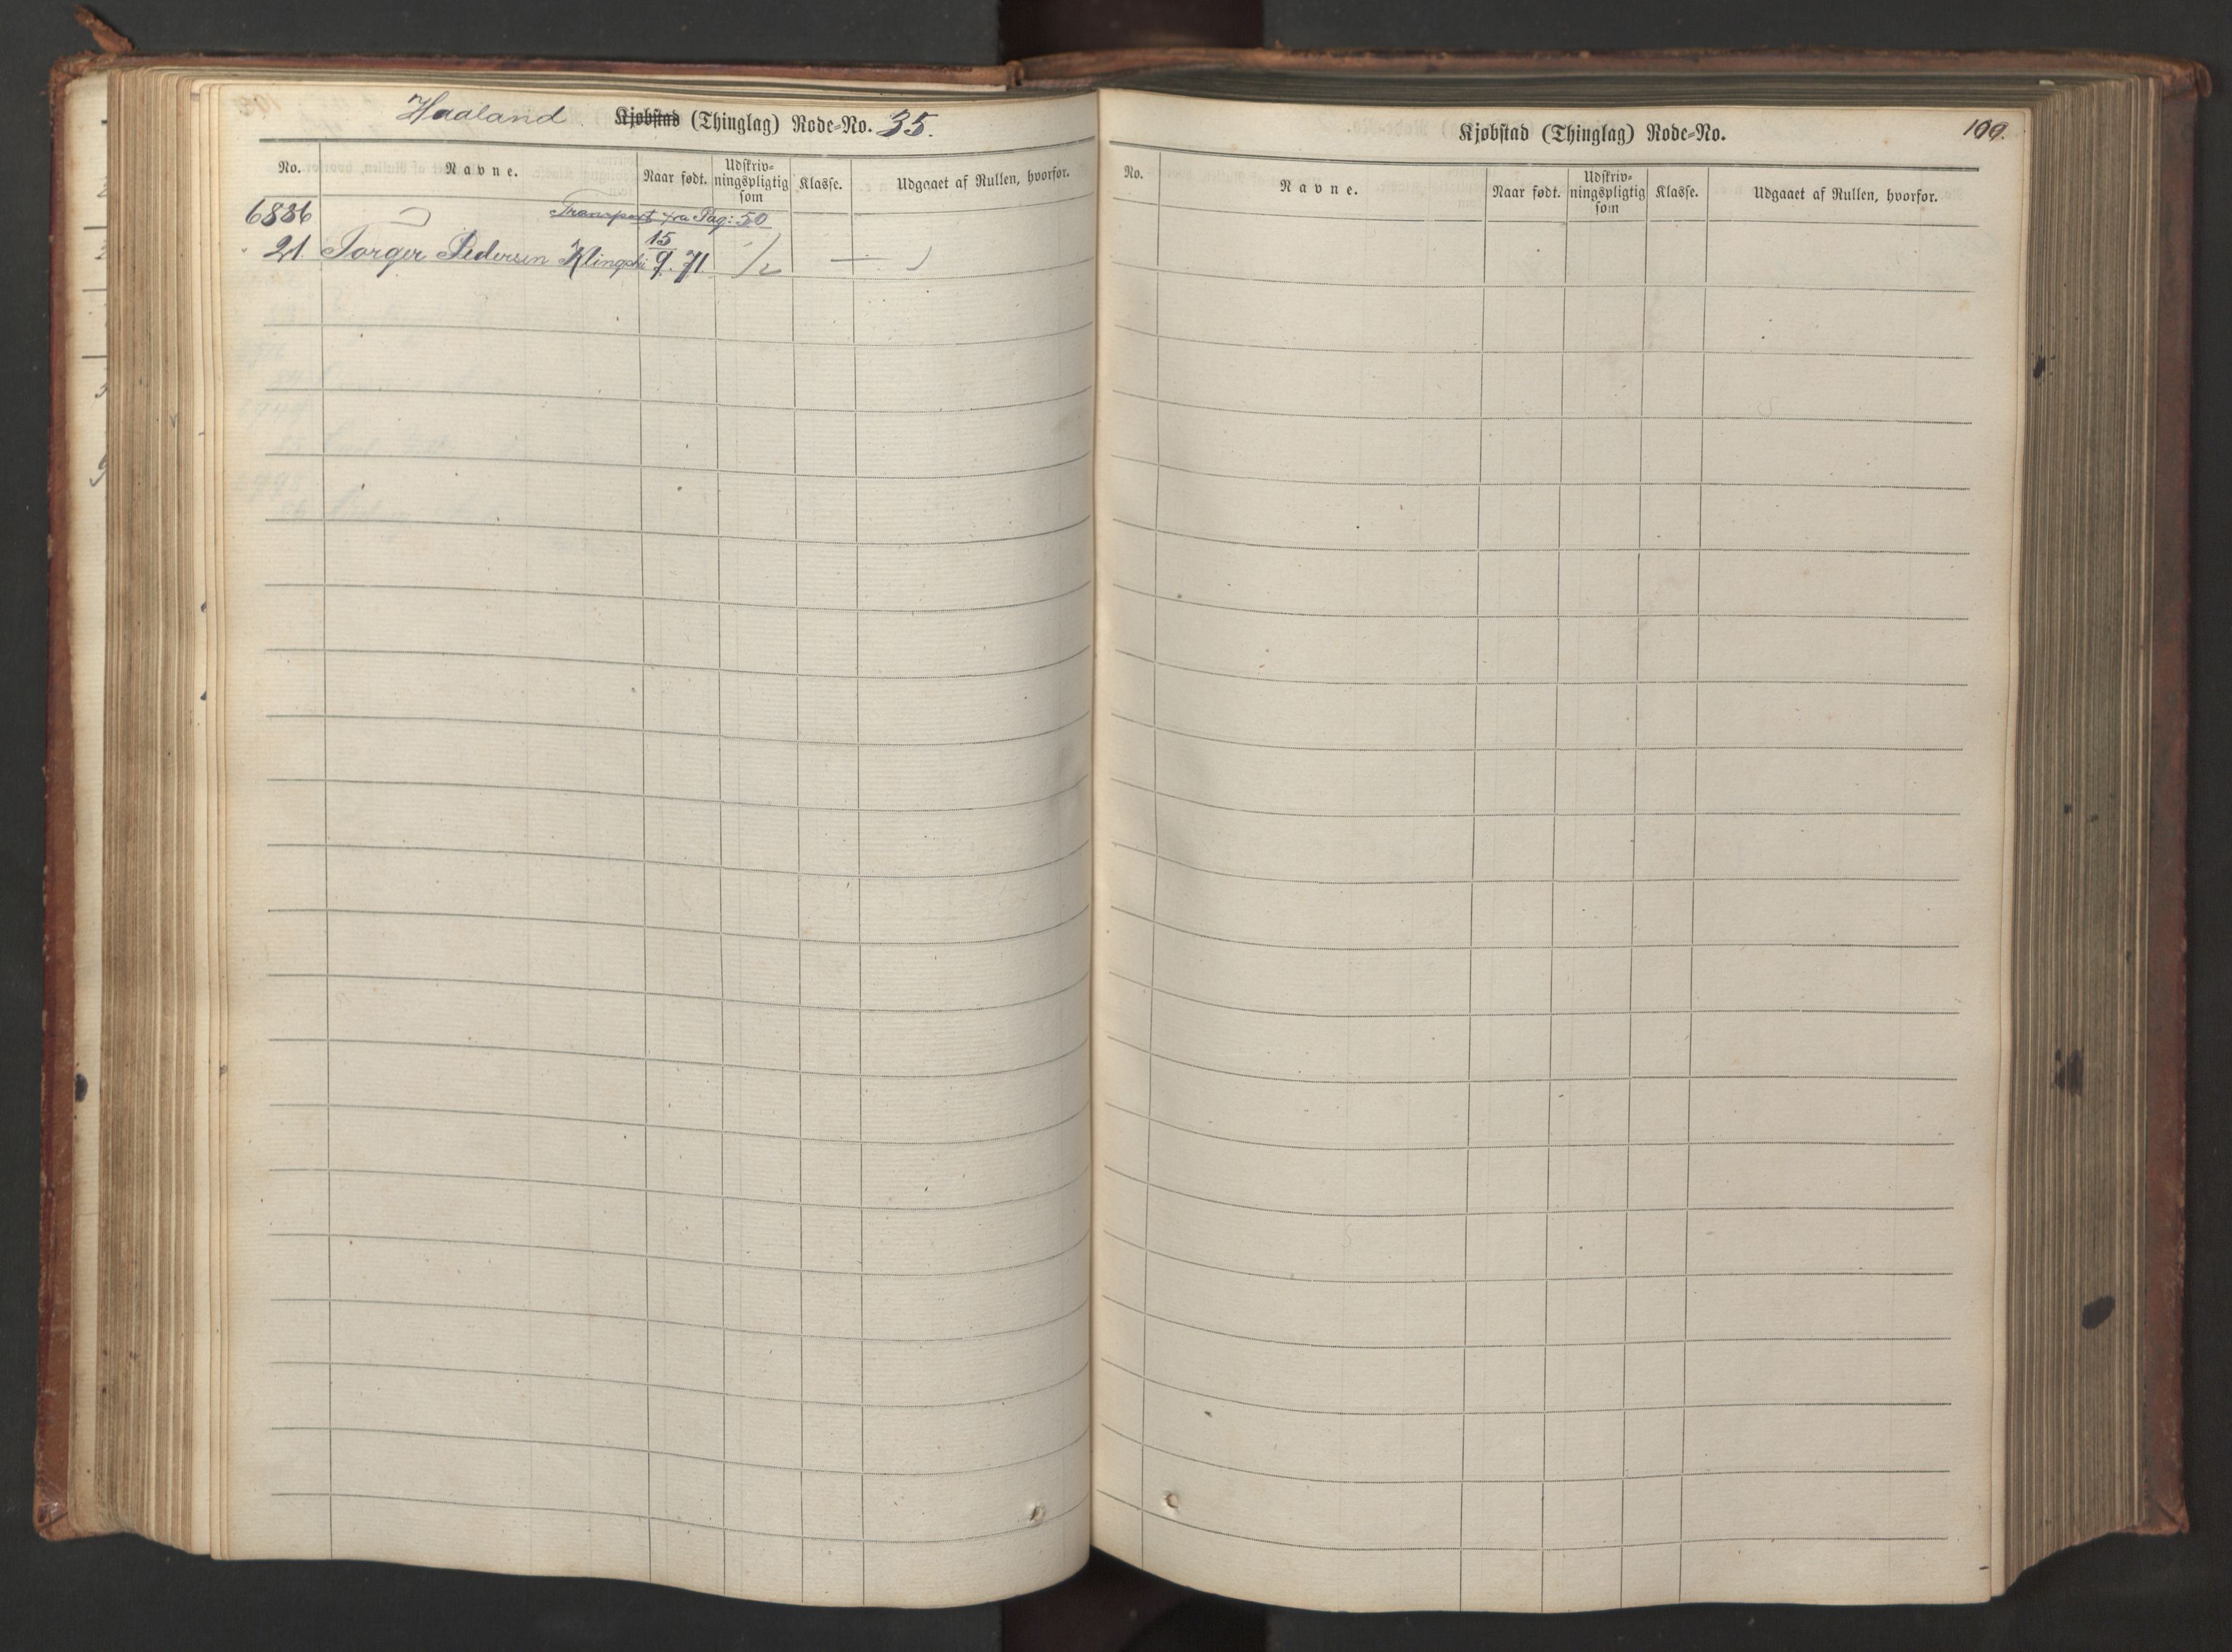 Haaland. Kjøbstad (Thinglag) Rode-No. 35.
No. Navne. Naar født. Udskriv-ningspligtig som Klasse. Udgaaet af Rullen, hvorfor.
6836 Transport fra Pag: 50
21 Torger Pedersen 15/9. 71 1/2 —
Kjøbstad (Thinglag) Rode-No. 109.
No. Navne. Naar født. Udskriv-ningspligtig som Klasse. Udgaaet af Rullen, hvorfor.